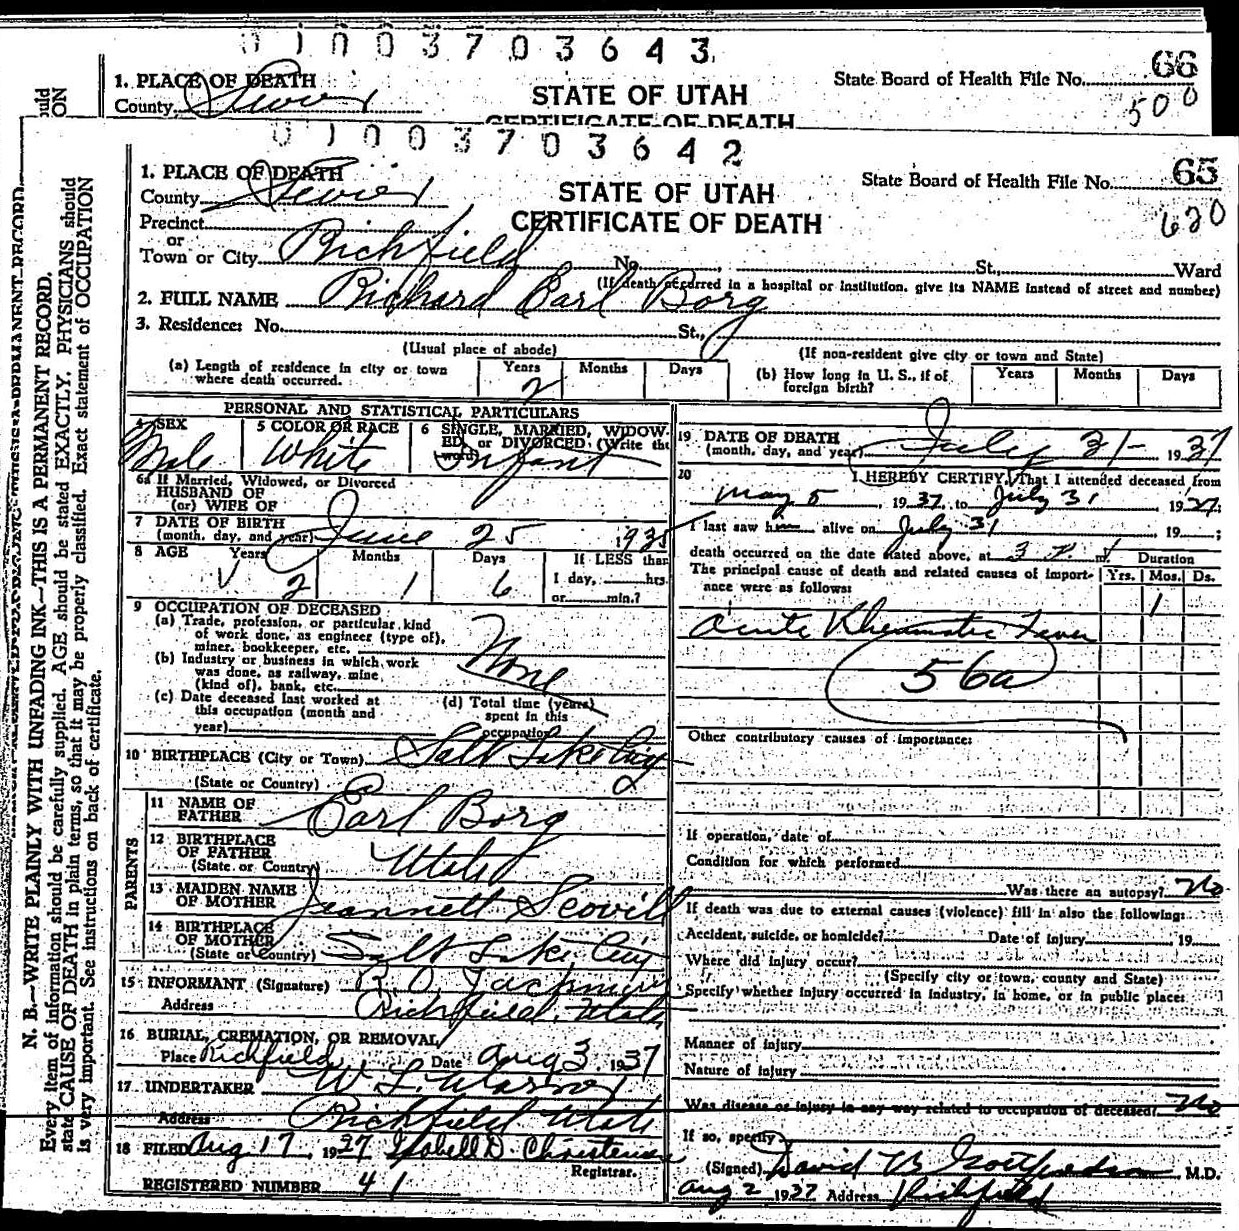 0 1 0 0 3 7 0 3 6 4 3
66
1. PLACE OF DEATH
State Board of Health File No.
County Sevier
STATE OF UTAH
500
CERTIFICATE OF DEATH
0 1 0 0 3 7 0 3 6 4 2
65
1. PLACE OF DEATH
State Board of Health File No.
County Sevier
STATE OF UTAH
620
Precinct
CERTIFICATE OF DEATH
or
Town or City Richfield No. , St., Ward
(If death occurred in a hospital or institution, give its NAME instead of street and number)
2. FULL NAME Richard Earl Borg
3. Residence: No. St.,
(Usual place of abode) (If non-resident give city or town and State)
(a) Length of residence in city or town where death occurred. Years 2 Months Days
(b) How long in U. S., if of foreign birth? Years Months Days
PERSONAL AND STATISTICAL PARTICULARS
4 SEX Male
5 COLOR OR RACE White
6 SINGLE, MARRIED, WIDOWED, or DIVORCED: (Write the word) Infant
6a If Married, Widowed, or Divorced
HUSBAND OF
(or) WIFE OF
7 DATE OF BIRTH
(month, day, and year) June 25 1935
8 AGE Years 2 Months 1 Days 6 If LESS than
1 day, hrs.
or min.?
9 OCCUPATION OF DECEASED
(a) Trade, profession, or particular kind
of work done, as engineer (type of),
miner, bookkeeper, etc.
None
(b) Industry or business in which work
was done, as railway, mine
(kind of), bank, etc.
(c) Date deceased last worked at
this occupation (month and
year)
(d) Total time (years)
spent in this
occupation
10 BIRTHPLACE (City or Town) Salt Lake City
(State or Country)
PARENTS
11 NAME OF FATHER Earl Borg
12 BIRTHPLACE OF FATHER (State or Country) Utah
13 MAIDEN NAME OF MOTHER Jeannett Scovill
14 BIRTHPLACE OF MOTHER (State or Country) Salt Lake City
15 INFORMANT (Signature) R. O.
Address Richfield, Utah
16 BURIAL, CREMATION, OR REMOVAL
Place Richfield Date Aug 3 1937
17 UNDERTAKER W. L.
Address Richfield Utah
18 FILED Aug 17, 1937 Isabell D. Christensen
Registrar.
REGISTERED NUMBER 41
19 DATE OF DEATH
(month, day, and year) July 31- 1937
20 I HEREBY CERTIFY, That I attended deceased from
May 5, 1937, to July 31 1937;
I last saw h alive on July 31, 19 ;
death occurred on the date stated above, at 3 m.
Duration
The principal cause of death and related causes of importance were as follows:
Yrs. Mos. Ds.
1
Acute Rheumatic Fever
56a
Other contributory causes of importance:
If operation, date of
Condition for which performed
Was there an autopsy? No
If death was due to external causes (violence) fill in also the following:
Accident, suicide, or homicide? Date of injury , 19
Where did injury occur?
(Specify city or town, county and State)
Specify whether injury occurred in industry, in home, or in public place:
Manner of injury
Nature of injury
Was disease or injury in any way related to occupation of deceased? No
If so, specify
(Signed) David B Gottfredson, M.D.
Aug 2 1937 Address Richfield
N. B.—WRITE PLAINLY WITH UNFADING INK—THIS IS A PERMANENT RECORD.
Every item of information should be carefully supplied. AGE should be stated EXACTLY. PHYSICIANS should
state CAUSE OF DEATH in plain terms, so that it may be properly classified. Exact statement of OCCUPATION
is very important. See instructions on back of certificate.